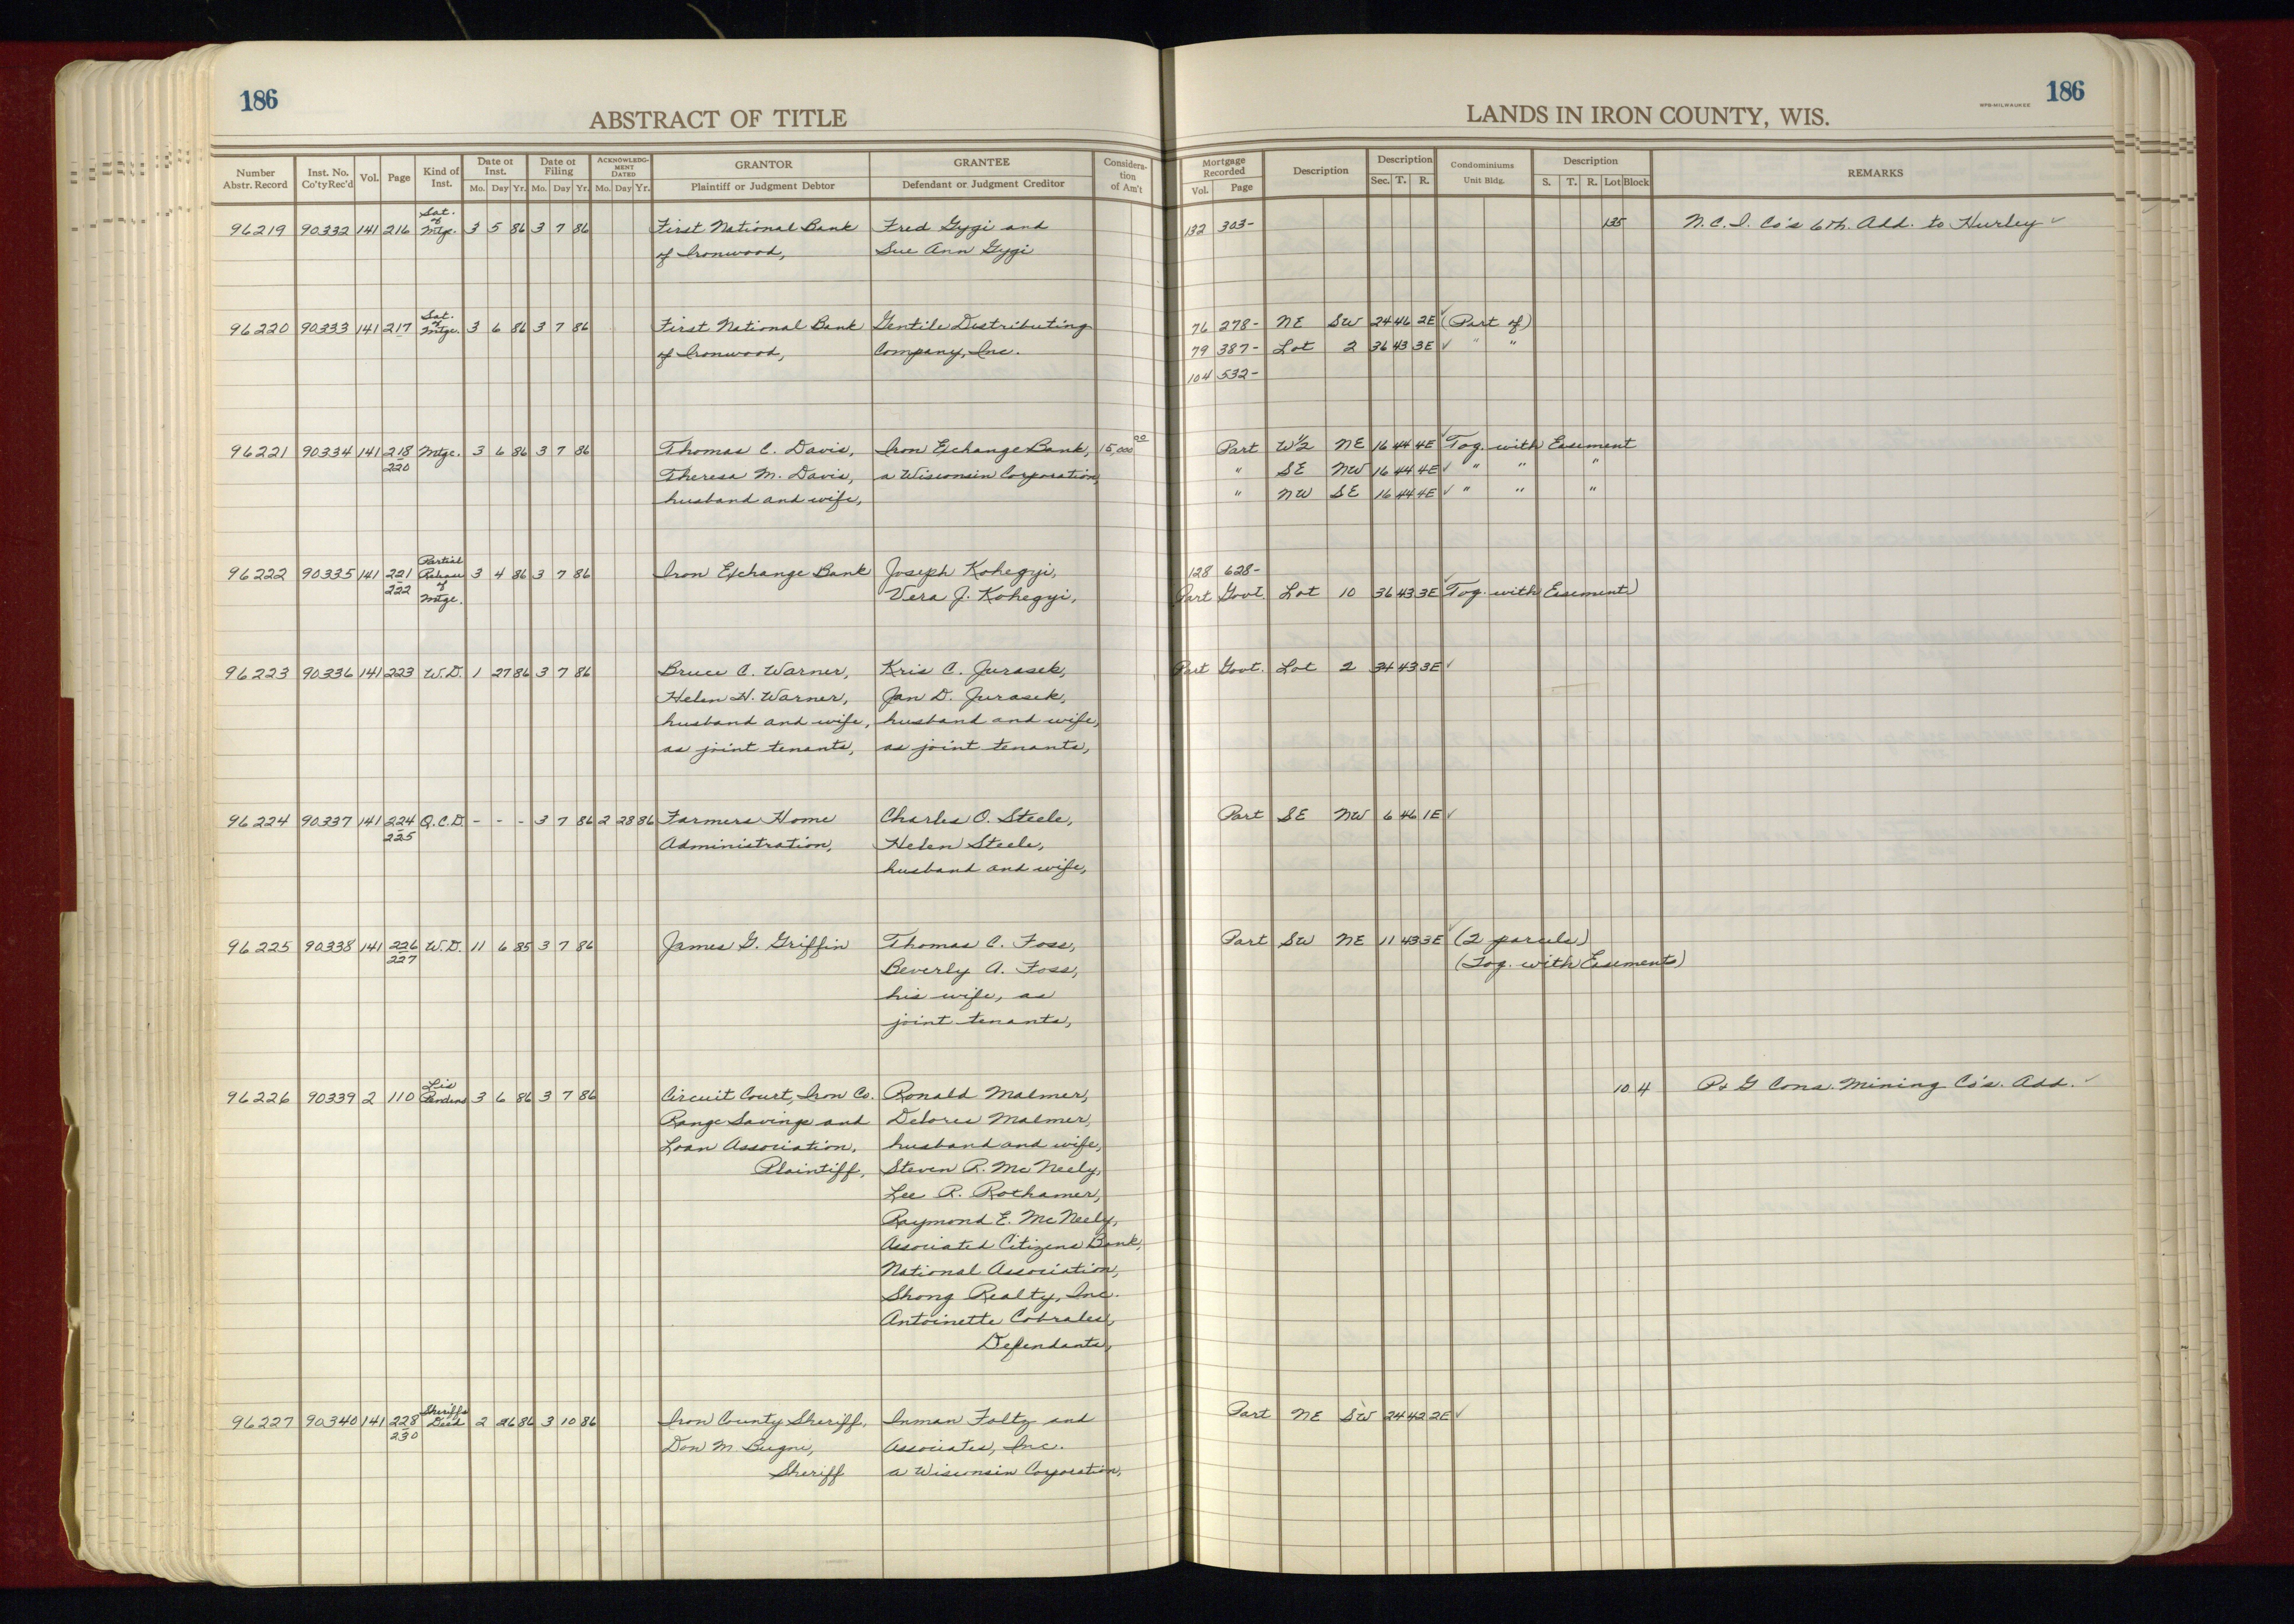 186
ABSTRACT OF TITLE
LANDS IN IRON COUNTY, WIS.
WPB-MILWAUKEE
186
Number Abstr. Record
Inst. No. Co'ty Rec'd
Vol.
Page
Kind of Inst.
Date of Inst.
Mo. Day Yr.
Date of Filing
Mo. Day Yr.
ACKNOWLEDG-MENT DATED
Mo. Day Yr.
GRANTOR
Plaintiff or Judgment Debtor
GRANTEE
Defendant or Judgment Creditor
Considera-tion of Am't
Mortgage Recorded
Vol. Page
Description
Description
Sec. T. R.
Condominiums
Unit Bldg.
Description
S. T. R. Lot Block
REMARKS
96219 90332 141 216 Sat. of Mtge. 3 5 86 3 7 86 First National Bank Fred Gygi and 132 303- 135 N.C.I. Co's 6th. Add. to Hurley ✓
of Ironwood, Sue Ann Gygi
96220 90333 141 217 Sat. of Mtge. 3 6 86 3 7 86 First National Bank Gentile Distributing 76 278- NE SW 24 46 2E ✓ (Part of)
of Ironwood, Company, Inc. 79 387- Lot 2 36 43 3E ✓ " "
104 532-
96221 90334 141 218-220 Mtge. 3 6 86 3 7 86 Thomas C. Davis, Iron Exchange Bank, 15,000 00 Part W½ NE 16 44 4E ✓ Tog. with Easement
Theresa M. Davis, a Wisconsin Corporation, " SE NW 16 44 4E ✓ " " "
husband and wife, " NW SE 16 44 4E ✓ " " "
96222 90335 141 221-222 Partial Release of Mtge. 3 4 86 3 7 86 Iron Exchange Bank Joseph Kohegyi, 128 628-
Vera J. Kohegyi, Part Govt. Lot 10 36 43 3E ✓ Tog. with Easements)
96223 90336 141 223 W.D. 1 27 86 3 7 86 Bruce C. Warner, Kris C. Jurasek, Part Govt. Lot 2 34 43 3E ✓
Helen H. Warner, Jan D. Jurasek,
husband and wife, husband and wife,
as joint tenants, as joint tenants,
96224 90337 141 224-225 Q.C.D. - - - 3 7 86 2 28 86 Farmers Home Charles O. Steele, Part SE NW 6 46 1E ✓
Administration, Helen Steele,
husband and wife,
96225 90338 141 226-227 W.D. 11 6 85 3 7 86 James G. Griffin Thomas C. Foss, Part SW NE 11 43 3E ✓ (2 parcels)
Beverly A. Foss, (Tog. with Easements)
his wife, as
joint tenants,
96226 90339 2 110 Lis Pendens 3 6 86 3 7 86 Circuit Court, Iron Co. Ronald Malmer, 10 4 P & G Cons. Mining Co's. Add. ✓
Range Savings and Delores Malmer,
Loan Association, husband and wife,
Plaintiff, Steven R. McNeely,
Lee R. Rothamer,
Raymond E. McNeely,
Associated Citizens Bank,
National Association,
Shong Realty, Inc.
Antoinette
Defendants,
96227 90340 141 228-230 Sheriff's Deed 2 26 86 3 10 86 Iron County Sheriff, Inman Foltz and Part NE SW 24 42 2E ✓
Don M. Bugni, Associates, Inc.
Sheriff a Wisconsin Corporation,